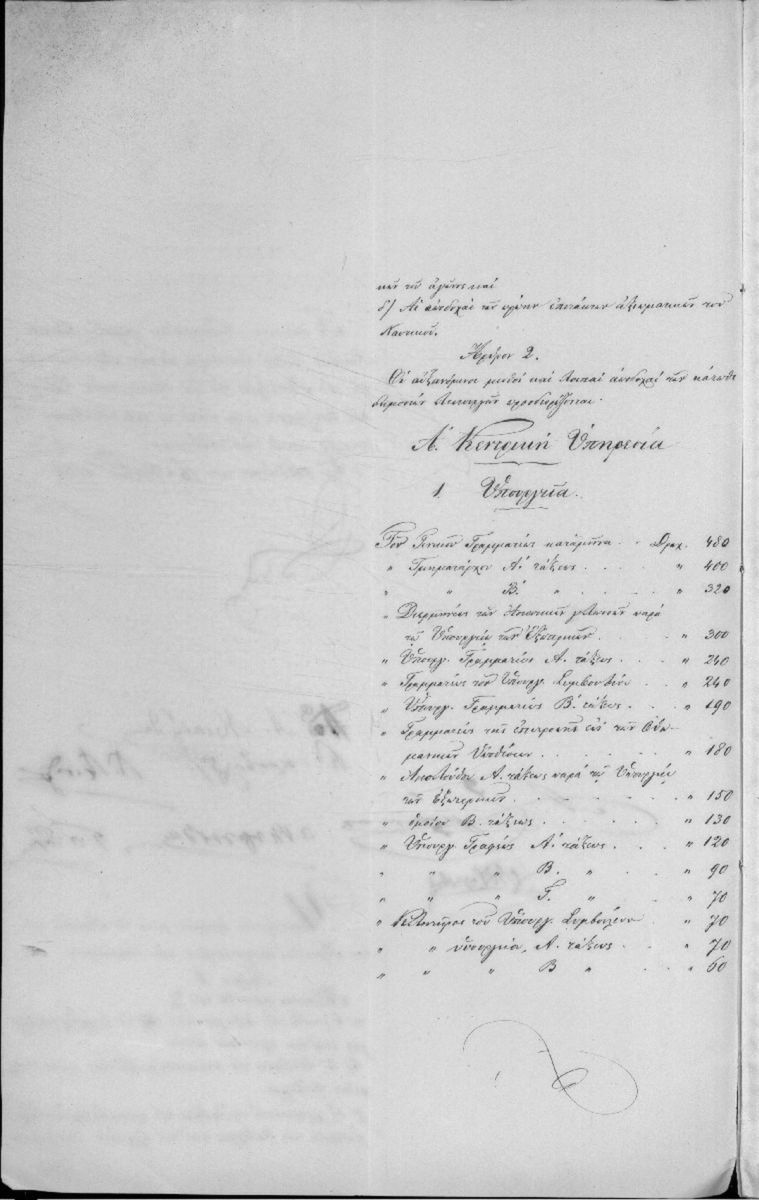 κῶν τοῦ ἀγῶνος καὶ
δ) Αἱ ἀποδοχαὶ τῶν πρώην ἐπιτάκτων ἀξιωματικῶν τοῦ
Ναυτικοῦ.
Ἄρθρον 2.
Οἱ αὐξανόμενοι μισθοὶ καὶ λοιπαὶ ἀποδοχαὶ τῶν κάτωθι
δημοσίων λειτουργῶν προσδιορίζονται.
Α΄. Κεντρικὴ Ὑπηρεσία
1. Ὑπουργεῖα.
Τοῦ Γενικοῦ Γραμματέως κατὰ μῆνα . . Δραχ. 480
" Τμηματάρχου Α΄. τάξεως . . . . " 400
" " Β΄. " . . . . " 320
" Διερμηνέως τῶν Ἀσιατικῶν γλωσσῶν παρὰ
τῷ Ὑπουργείῳ τῶν Ἐξωτερικῶν . . . . " 300
" Ὑπουργ. Γραμματέως Α΄. τάξεως . . . " 240
" Γραμματέως τοῦ Ὑπουργ. Συμβουλίου . . " 240
" Ὑπουργ. Γραμματέως Β΄. τάξεως . . " 190
" Γραμματέως τῆς ἐπιτροπῆς ἐπὶ τῶν Ὀθω-
μανικῶν Ὑποθέσεων . . . . . " 180
" Ἀκολούθου Α΄. τάξεως παρὰ τῷ Ὑπουργείῳ
τῶν Ἐξωτερικῶν . . . . . . " 150
" ὁμοίου Β. τάξεως . . . . . " 130
" Ὑπουργ. Γραφέως Α΄. τάξεως . . . " 120
" " " Β. " . . . " 90
" " " Γ. " . . . " 70
" Κλητῆρος τοῦ Ὑπουργ. Συμβουλίου . . " 70
" " ὑπουργείου, Α. τάξεως . . " 70
" " " Β " . . . " 60